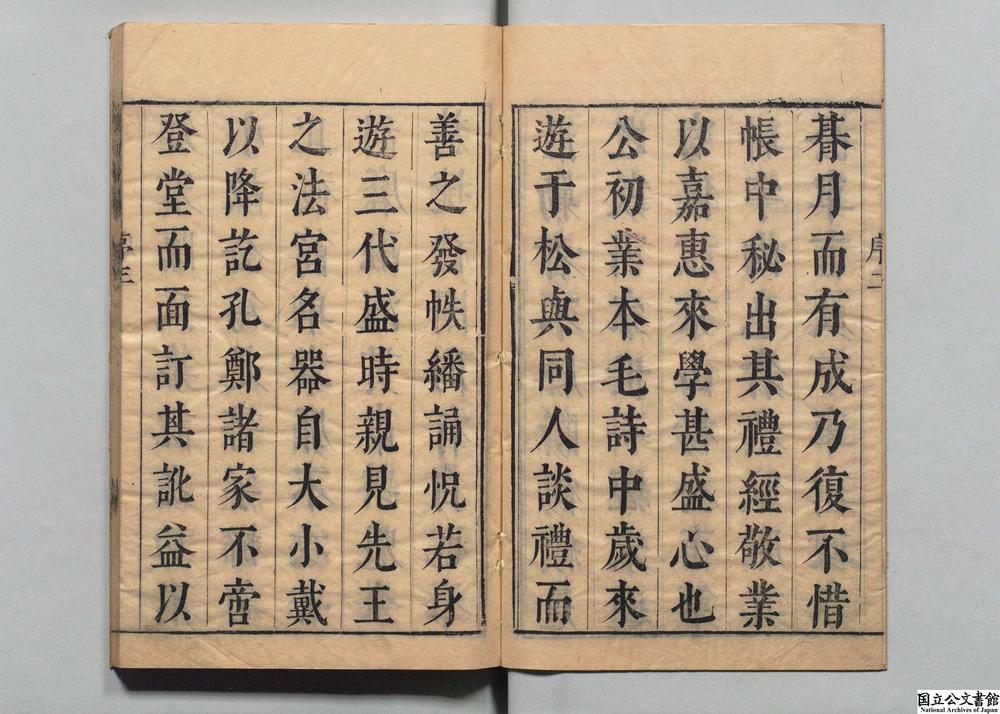 朞月而有成乃復不惜
帳中秘出其禮經敬業
以嘉惠來學甚盛心也
公初業本毛詩中歲來
遊于松與同人談禮而
善之發帙繙誦怳若身
遊三代盛時親見先王
之法宮名器自大小戴
以降訖孔鄭諸家不啻
登堂而面訂其訛益以
序二
序三
国立公文書館
National Archives of Japan